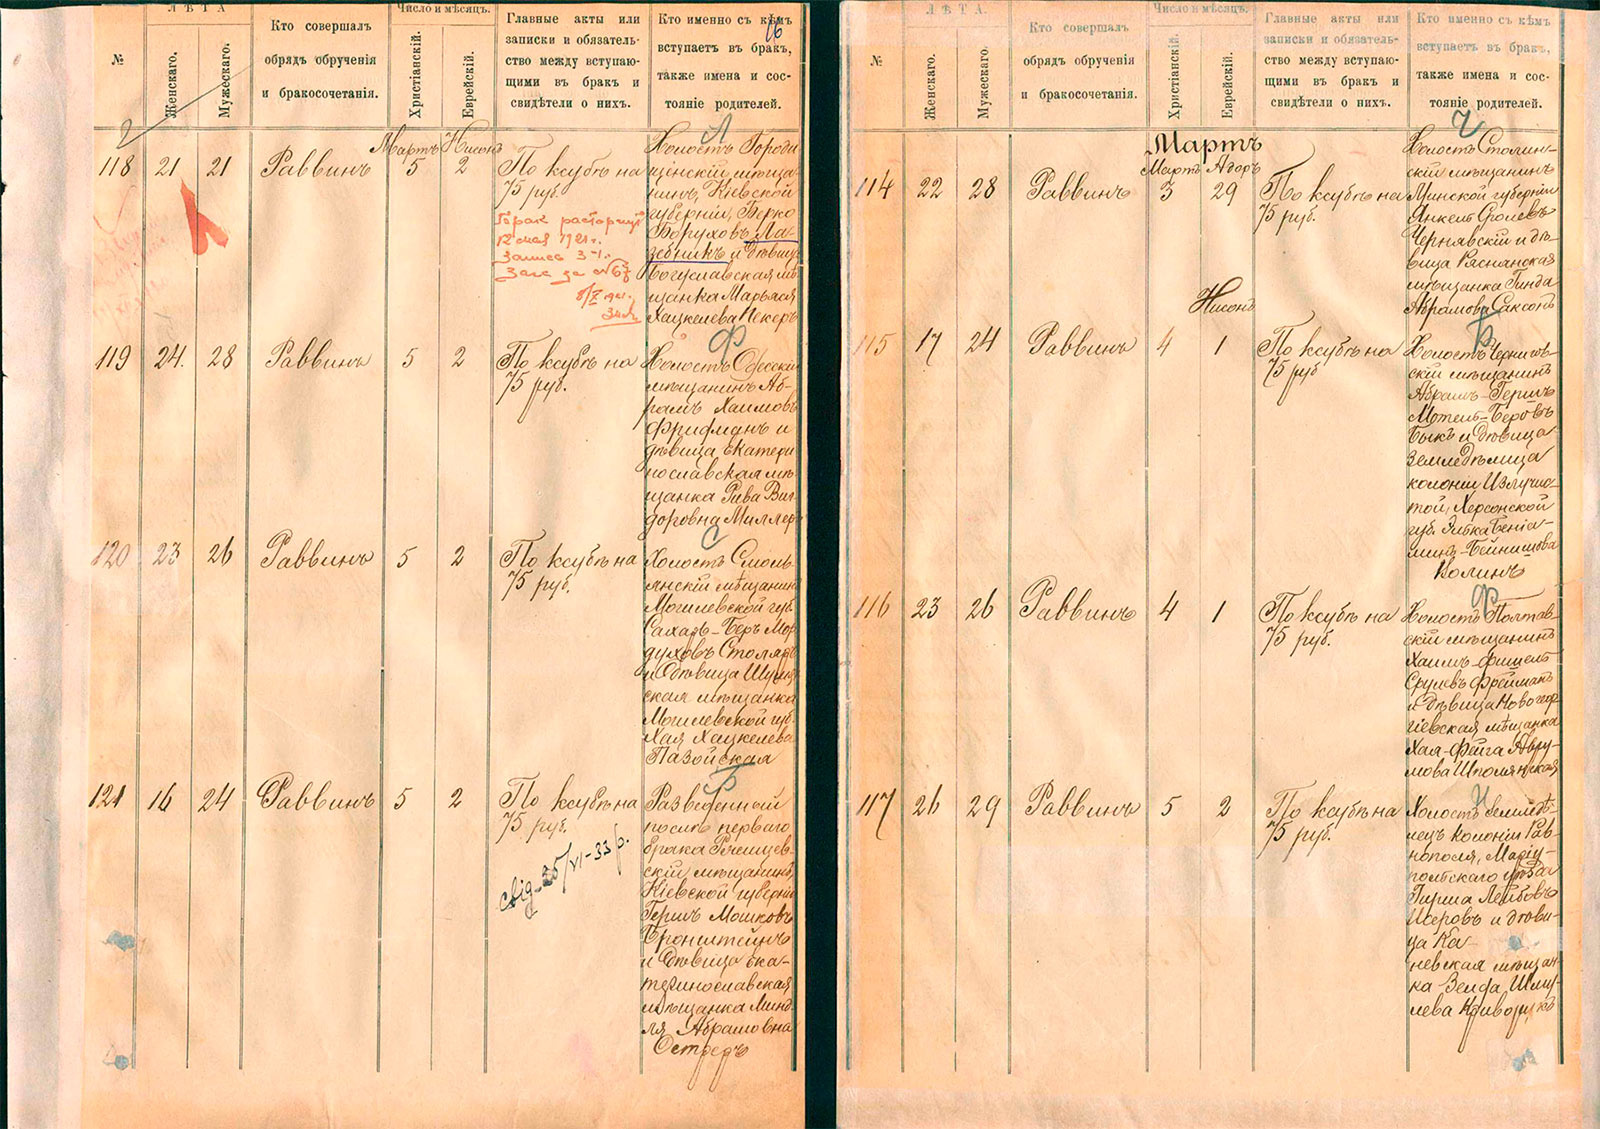 ЛѢТА
Число и мѣсяцъ.
№
Женскаго.
Мужескаго.
Кто совершалъ
обрядъ обрученія
и бракосочетанія.
Христіанскій.
Еврейскій.
Главные акты или
записки и обязатель-
ство между вступаю-
щими въ бракъ и
свидѣтели о нихъ.
Кто именно съ кѣмъ
вступаетъ въ бракъ,
также имена и сос-
тояніе родителей.
Мартъ Нисонъ
Л
118 21 21 Раввинъ 5 2 По ксубѣ на
75 руб.
Брак расторгнут
12 мая 1921 г.
Запись 3-1.
Загс за №
Холостъ Городи
щенскій мѣща-
нинъ, Кіевской
губерніи, Берко
Боруховъ Ма-
зебникъ и дѣвица
Богуславская мѣ
щанка Марьяся
Хацкелева Пекеръ
Ф
119 24. 28 Раввинъ 5 2 По ксубѣ на
75 руб.
Холостъ Одесскій
мѣщанинъ Аб-
рамъ Хаимовъ
Фридманъ и
дѣвица Екатери
нославская мѣ
щанка Рива Виг
доровна Миллеръ
С
120 23 26 Раввинъ 5 2 По ксубѣ на
75 руб.
Холостъ Смоль
янскій мѣщанинъ
Могилевской губ.
Сахаръ-Беръ Мор
духовъ Столяръ
и дѣвица
ская мѣщанка
Могилевской губ.
Хая Хацкелева
Пазойская
Б
121 16 24 Раввинъ 5 2 По ксубѣ на
75 руб.
свід. 25/VI-33 р.
Разведенный
послѣ перваго
брака Ржищев-
скій мѣщанинъ,
Кіевской губерніи
Гершъ Мошковъ
Бронштейнъ
и дѣвица Ека-
теринославская
мѣщанка Минд-
ля Абрамовна
Остредъ
ЛѢТА.
Число и мѣсяцъ.
№
Женскаго.
Мужескаго.
Кто совершалъ
обрядъ обрученія
и бракосочетанія.
Христіанскій.
Еврейскій.
Главные акты или
записки и обязатель-
ство между вступаю-
щими въ бракъ и
свидѣтели о нихъ.
Кто именно съ кѣмъ
вступаетъ въ бракъ,
также имена и сос-
тояніе родителей.
Мартъ
Мартъ Адоръ
Ч
114 22 28 Раввинъ 3 29 По ксубѣ на
75 руб.
Холостъ Столин-
скій мѣщанинъ
Минской губерніи
Янкель Сролевъ
Чернявскій и дѣ-
вица Ряснянская
мѣщанка Гинда
Абрамова Саксонъ
Нисонъ
Б
115 17 24 Раввинъ 4 1 По ксубѣ на
75 руб
Холостъ Чернигов-
скій мѣщанинъ
Абрамъ-Гершъ
Мотель-Беровъ
Быкъ и дѣвица
земледѣлица
колоніи Излучис-
той, Херсонской
губ. Зибка Беніа-
минъ-Бейнишова
Колинъ
Ф
116 23 26 Раввинъ 4 1 По ксубѣ на
75 руб.
Холостъ Полтав-
скій мѣщанинъ
Хаимъ-Фишель
Срулевъ Фрейманъ
и дѣвица Новогеор
гіевская мѣщанка
Хая-Фейга Авру-
мова Шполянская
117 26 29 Раввинъ 5 2 По ксубѣ на
75 руб.
Холостъ земледѣ-
лецъ колоніи Рав-
нополя, Маріу-
польскаго уѣзда
Гирша Лейбовъ
Исеровъ и дѣви-
ца Ка-
невская мѣщан-
ка Зелда Шму-
лева Криворукъ